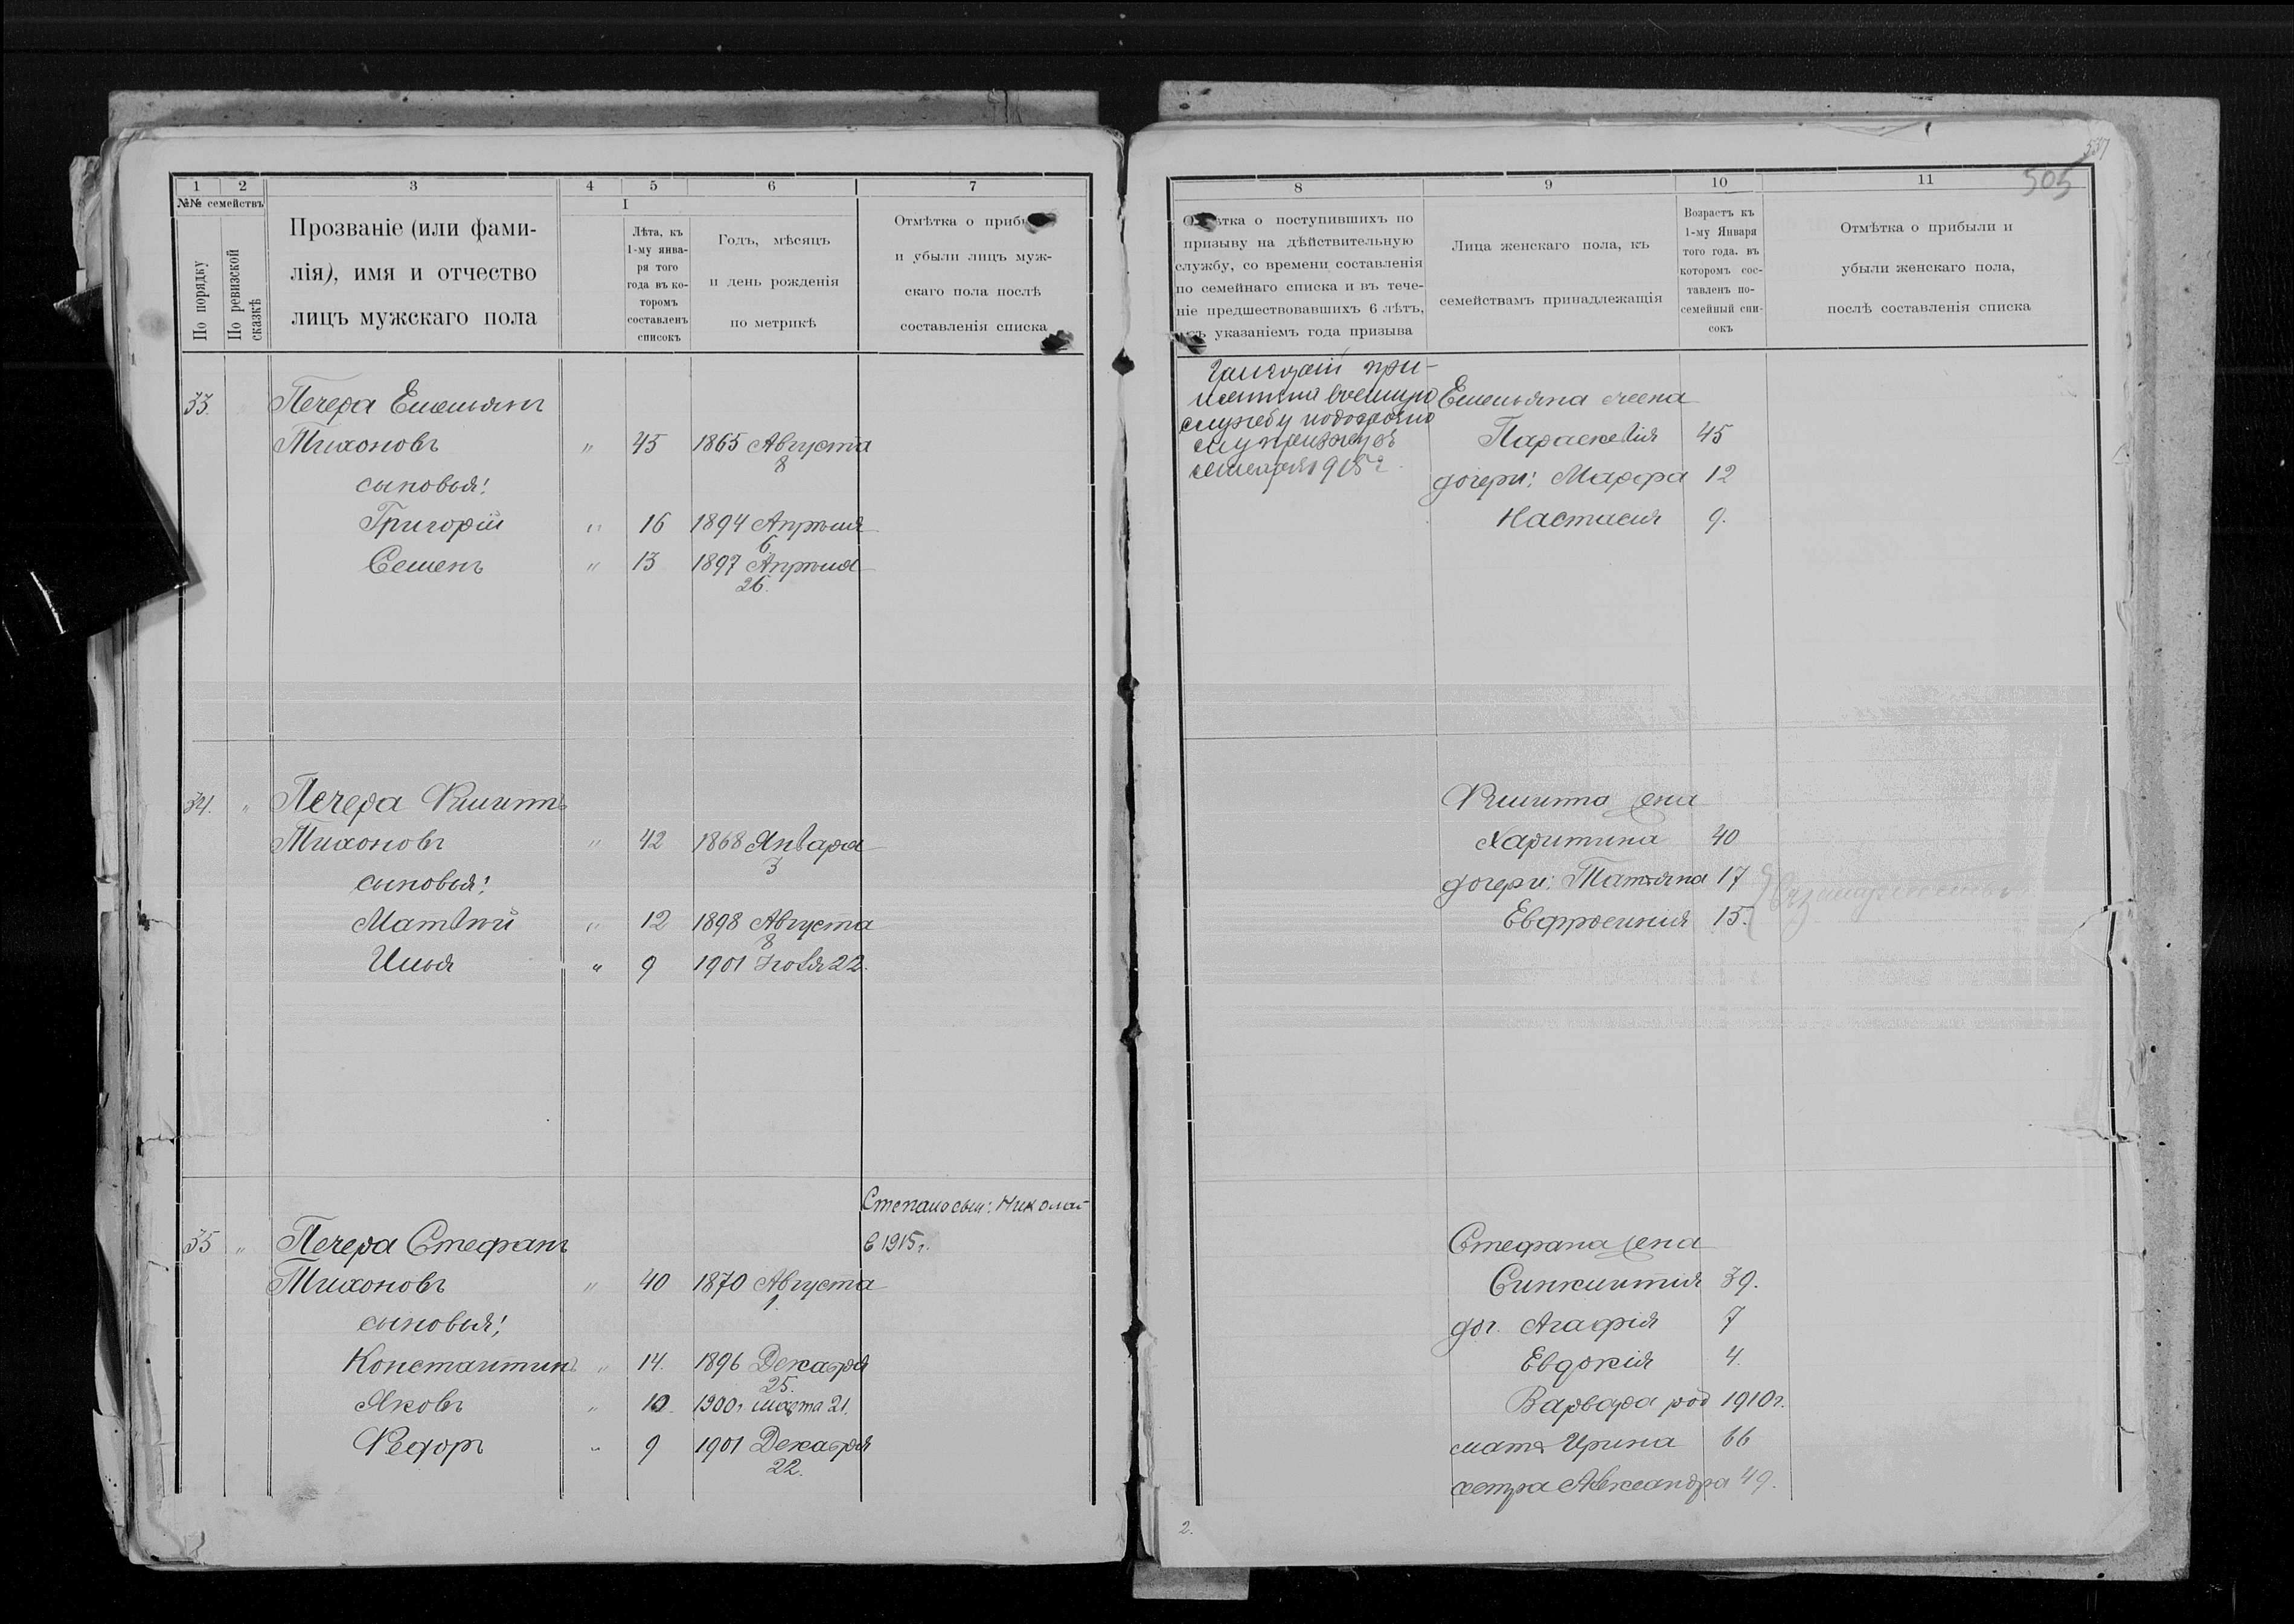 537
505
1 2 3 4 5 6 7
№№ семействъ
По порядку
По ревизской сказкѣ
Прозваніе (или фами-
лія), имя и отчество
лицъ мужскаго пола
I
Лѣта, къ
1-му янва-
ря того
года въ ко-
торомъ
составленъ
списокъ
Годъ, мѣсяцъ
и день рожденія
по метрикѣ
Отмѣтка о прибы
и убыли лицъ муж-
скаго пола послѣ
составленія списка
33. Печера Емельянъ
Тихоновъ " 45 1865 Августа
8
сыновья:
Григорій " 16 1894 Апрѣля
6
Семенъ " 13 1897 Апрѣля
26.
34. " Печера Филиппъ
Тихоновъ " 42 1868 Января
3
сыновья:
Матвѣй " 12 1898 Августа
8
Илья " 9 1901 Іюля 22.
Степана сын: Николай
35 " Печера Стефанъ в 1915 г.
Тихоновъ " 40 1870 Августа
1.
сыновья:
Константинъ " 14. 1896 Декабря
25.
Яковъ " 10 1900 г марта 21.
Федоръ " 9 1901 Декабря
22.
8 9 10 11
Отмѣтка о поступившихъ по
призыву на дѣйствительную
службу, со времени составленія
по семейнаго списка и въ тече-
ніе предшествовавшихъ 6 лѣтъ,
съ указаніемъ года призыва
Лица женскаго пола, къ
семействамъ принадлежащія
Возрастъ къ
1-му Января
того года. въ
которомъ сос-
тавленъ по-
семейный спи-
сокъ
Отмѣтка о прибыли и
убыли женскаго пола,
послѣ составленія списка
Григорій при-
службу
1915 г.
Емельяна жена
Параскевія 45
дочери: Марфа 12
Настасія 9.
Филиппа жена
Харитина 40
дочери: Татьяна 17
Евфросинія 15.
Стефана жена
Синклитія 39.
доч. Агафія 7
Евдокія 4.
Варвара род 1910 г.
мать Ирина 66
сестра Александра 49.
2.